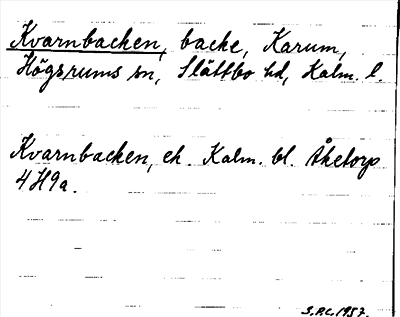 Kvarnbacken, backe, Karum,
Högsrums sn, Slättbo hd, Kalm. l.
Kvarnbacken, ek. Kalm. bl. Åketorp
4H9a.
S.P.C. 1957.